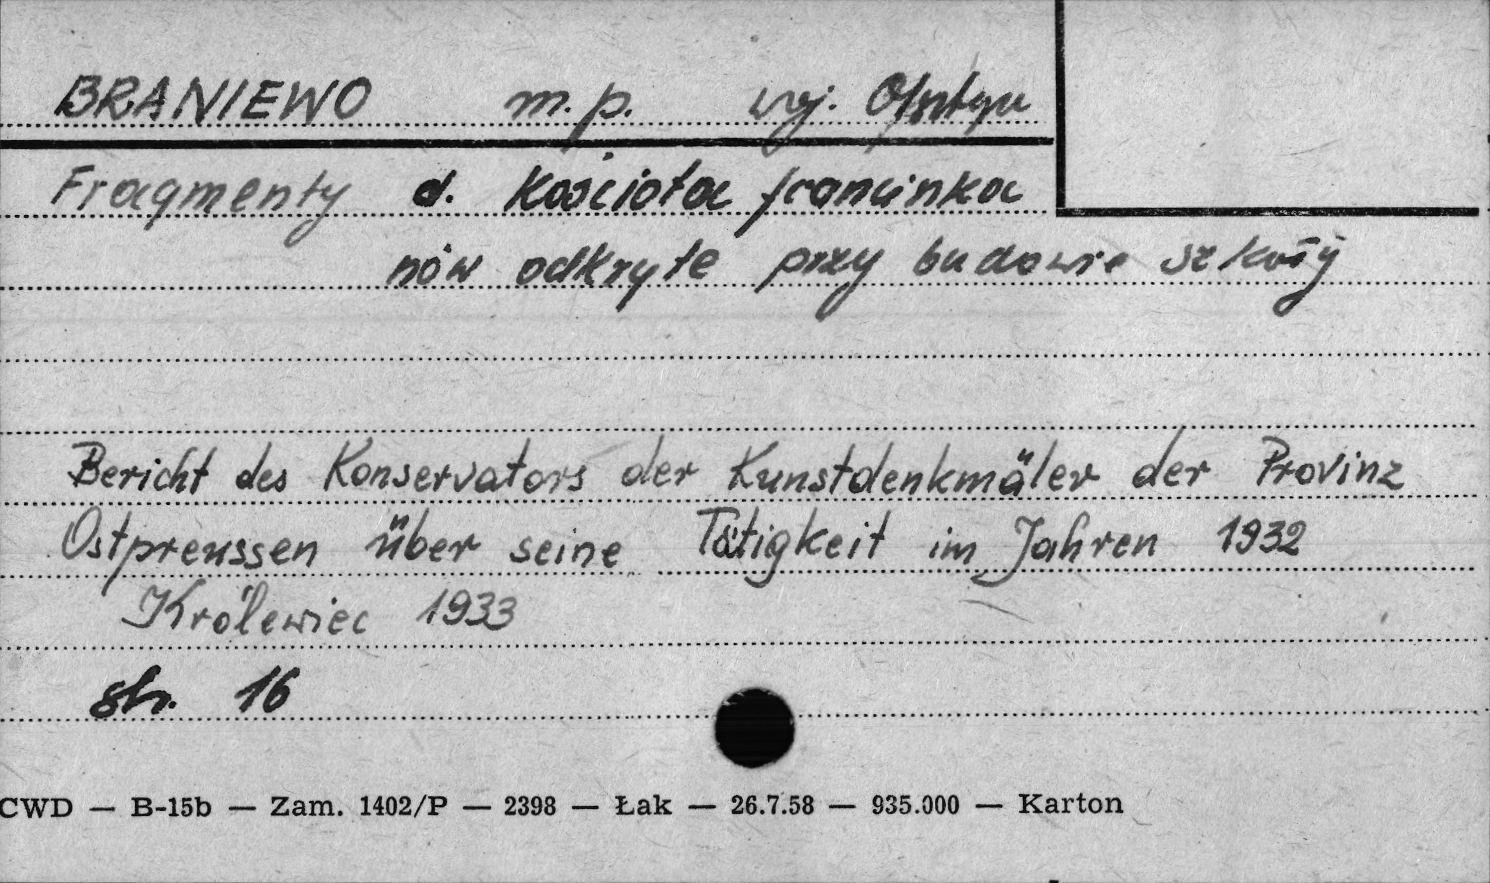 BRANIEWO m.p. woj. Olsztyn
Fragmenty d. Kościoła francinka
nów odkryte przy budowie szkoły
Bericht des Konservators der Kunstdenkmäler der Provinz
Ostpreussen über seine Tätigkeit im Jahren 1932
Królewiec 1933
str. 16
CWD — B-15b — Zam. 1402/P — 2398 — Łak — 26.7.58 — 935.000 — Karton